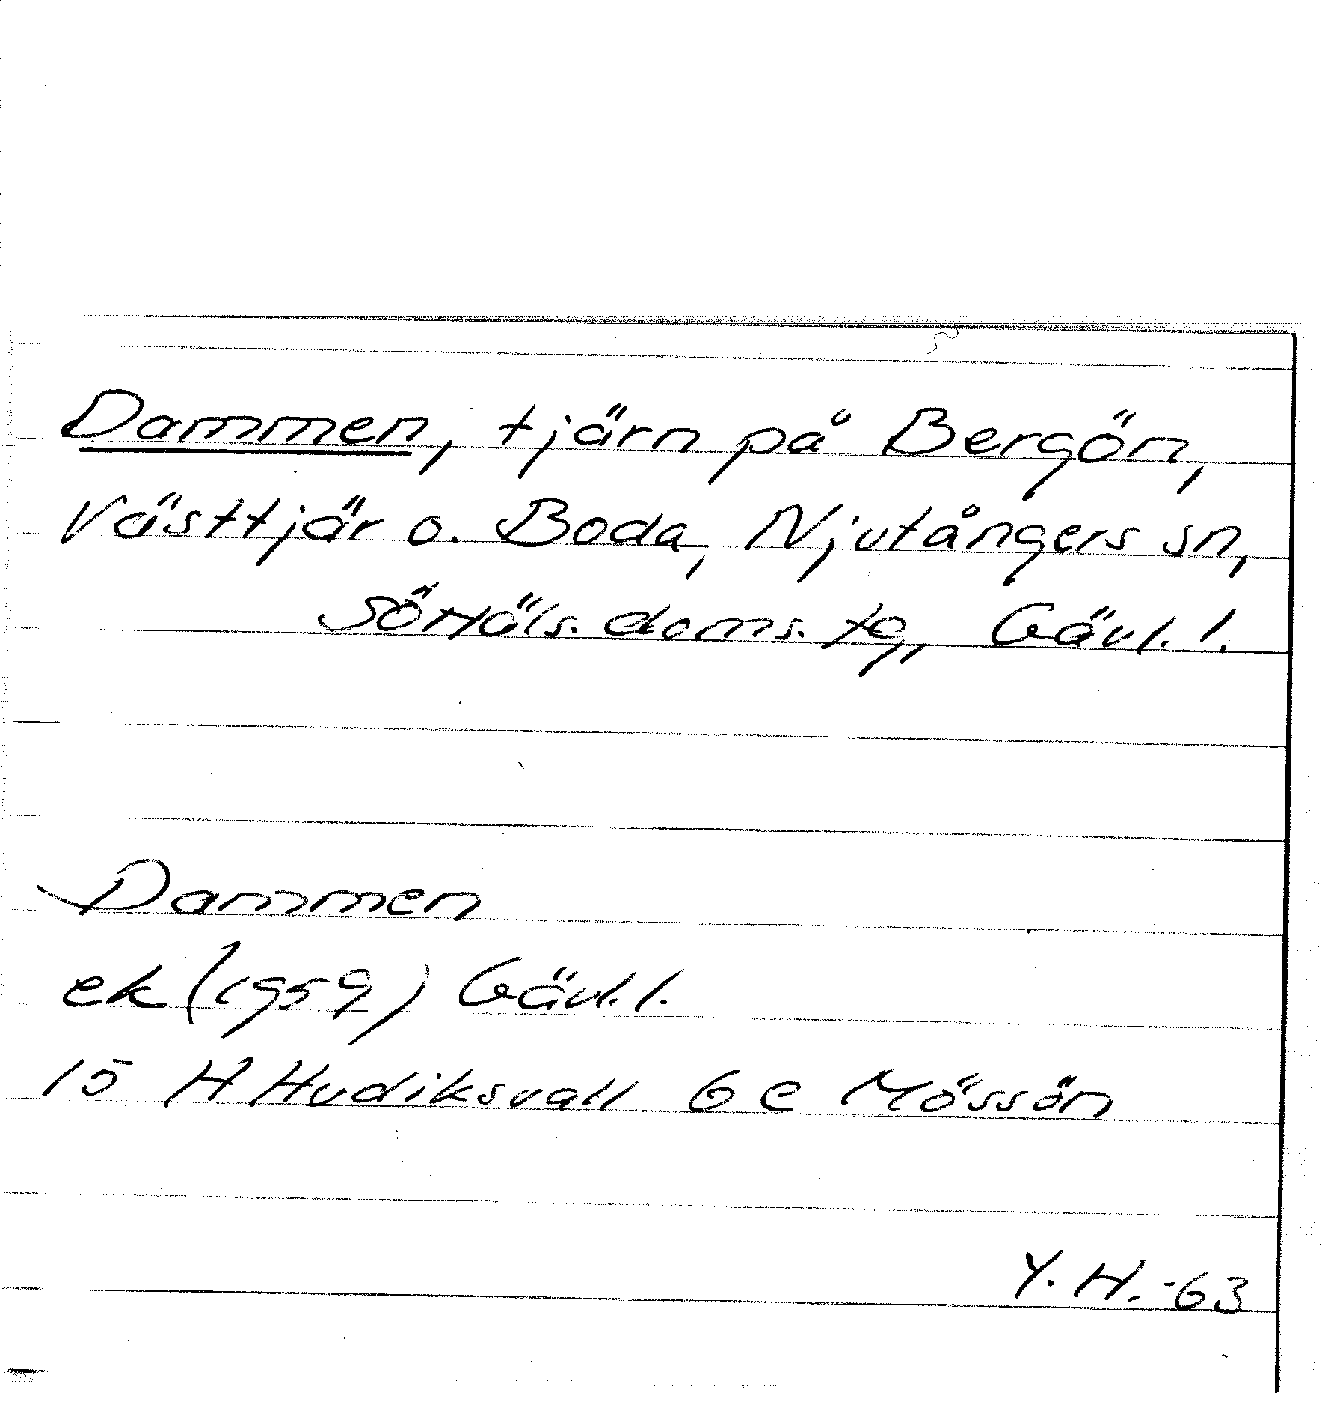 Dammen, tjärn på Bergön,
Västtjär o. Boda, Njutångers sn,
SöHäls. doms. tg, Gävl. l.
Dammen
ek (1959) Gävl. l.
15 H Hudiksvall 6 e Mössön
Y. H. -63